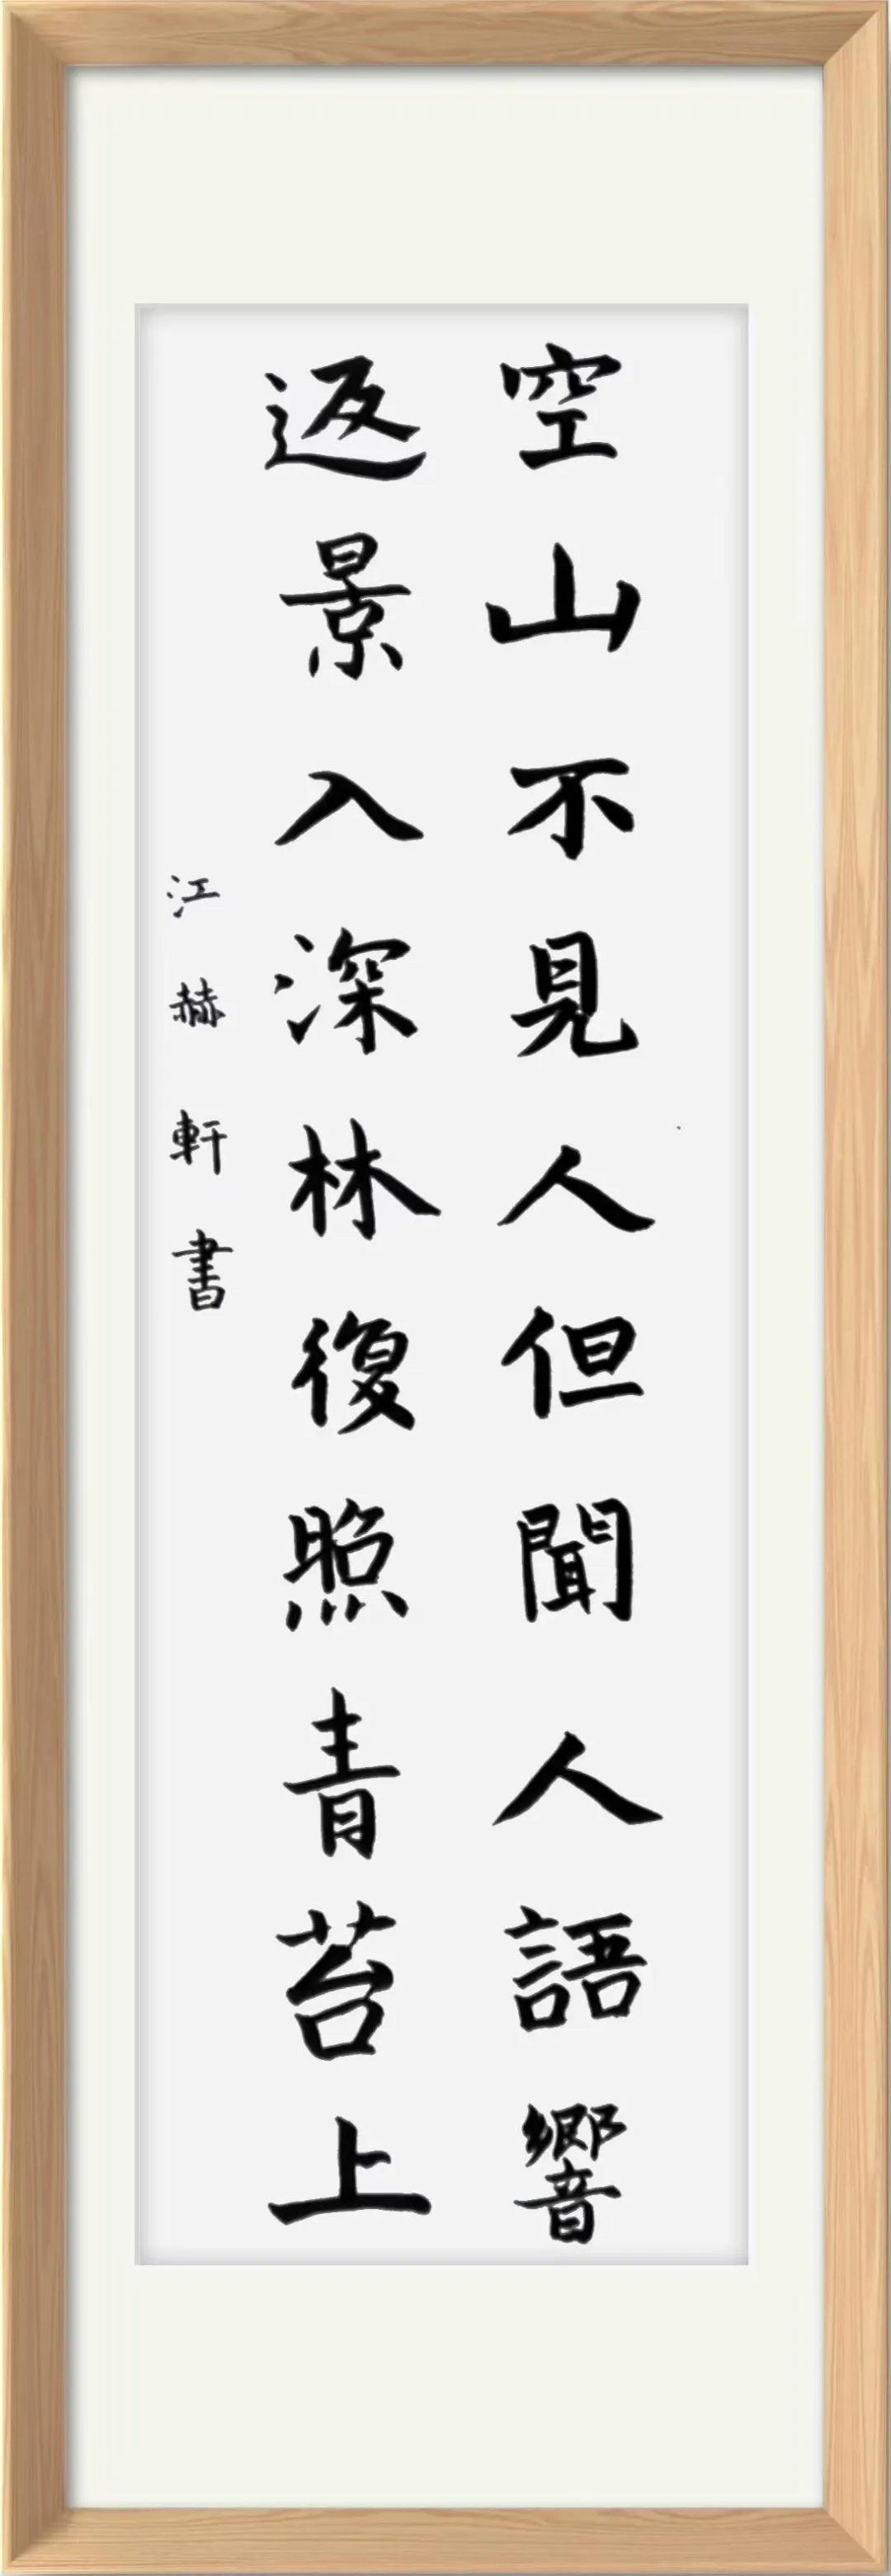 空山不見人但聞人語響
返景入深林復照青苔上
江赫軒書